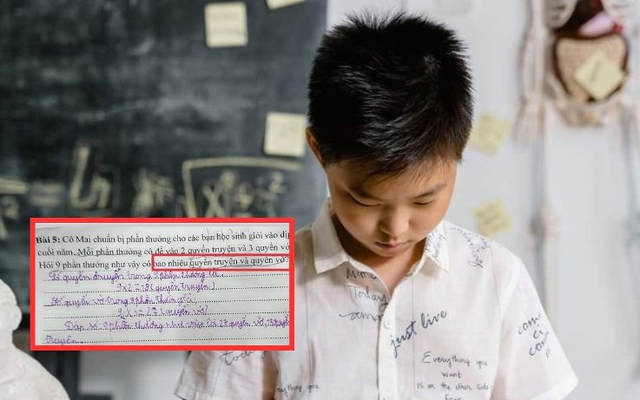 Bài 5: Cô Mai chuẩn bị phần thưởng cho các bạn học sinh giỏi vào dịp
cuối năm. Mỗi phần thưởng cô để vào 2 quyển truyện và 3 quyển vở
Hỏi 9 phần thưởng như vậy có bao nhiêu quyển truyện và quyển vở?
Số quyển truyện trong 9 phần thưởng là
9x2=18 (quyển truyện)
Số quyển vở trong 9 phần thưởng là
9x3=27 (quyển vở)
Đáp số: 9 phần thưởng như vậy có 27 quyển vở, 18 quyển
truyện.
Today
am
just live
Everything you
want
is on the other
side